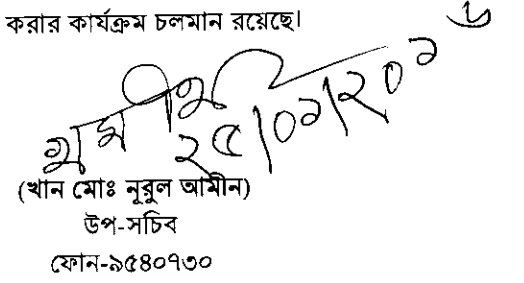 করার কার্যক্রম চলমান রয়েছে।
২৫/০১/২০১৬
(খান মোঃ নূরুল আমীন)
উপ-সচিব
ফোন-৯৫৪০৭৩০